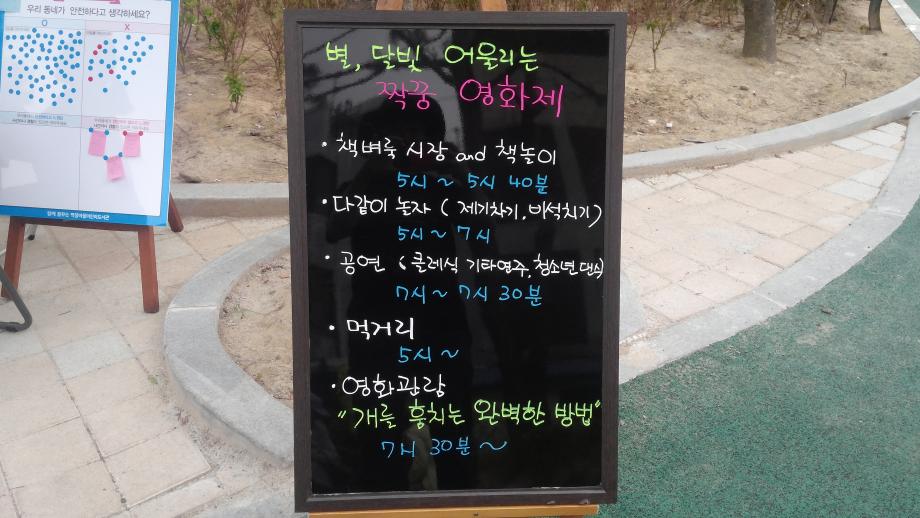 우리 동네가 안전하다고 생각하세요?
O X
별, 달빛 어울리는
짝꿍 영화제
· 책벼룩 시장 and 책놀이
5시 ~ 5시 40분
· 다같이 놀자 ( 제기차기, 비석치기)
5시 ~ 7시
· 공연 ( 클레식 기타연주, 청소년댄스)
7시 ~ 7시 30분
· 먹거리
5시 ~
· 영화관람
"개를 훔치는 완벽한 방법"
7시 30분 ~